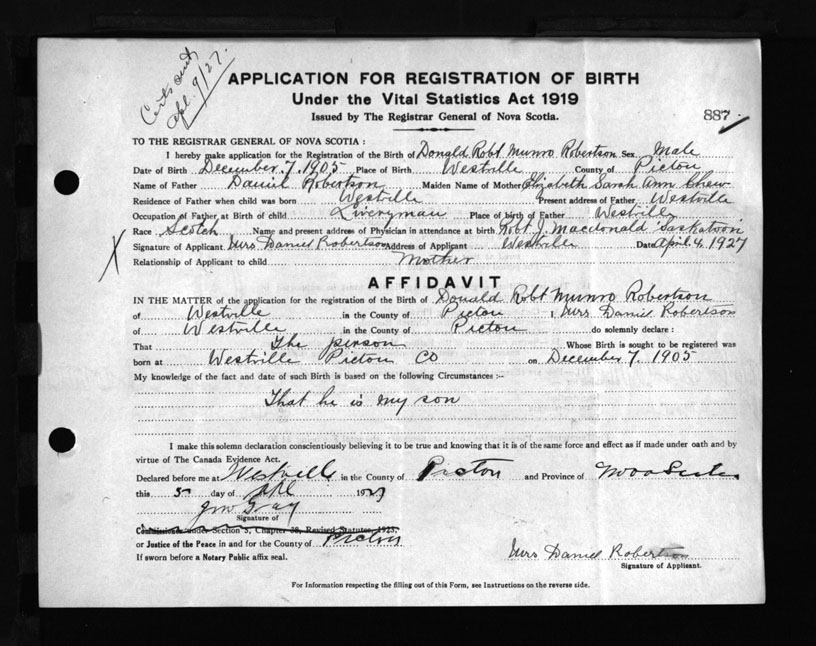 Certs and
Apl. 9/27.
APPLICATION FOR REGISTRATION OF BIRTH
Under the Vital Statistics Act 1919
Issued by The Registrar General of Nova Scotia.
887
TO THE REGISTRAR GENERAL OF NOVA SCOTIA :
I hereby make application for the Registration of the Birth of Donald Robt Munro Robertson Sex Male
Date of Birth December 7, 1905 Place of Birth Westville County of Picton
Name of Father Daniel Robertson Maiden Name of Mother Elizabeth Sarah Ann Shaw
Residence of Father when child was born Westville Present address of Father Westville
Occupation of Father at Birth of child Liveryman Place of birth of Father Westville
Race Scotch Name and present address of Physician in attendance at birth Robt J. Macdonald Saskatoon
X Signature of Applicant Mrs Daniel Robertson Address of Applicant Westville Date April 4, 1927
Relationship of Applicant to child Mother
AFFIDAVIT
IN THE MATTER of the application for the registration of the Birth of Donald Robt Munro Robertson
of Westville in the County of Picton I, Mrs. Daniel Robertson
of Westville in the County of Picton do solemnly declare :
That The person Whose Birth is sought to be registered was
born at Westville Picton Co on December 7, 1905
My knowledge of the fact and date of such Birth is based on the following Circumstances :–
That he is my son
I make this solemn declaration conscientiously believing it to be true and knowing that it is of the same force and effect as if made under oath and by
virtue of The Canada Evidence Act.
Declared before me at Westville in the County of Picton and Province of Nova Scotia
this 5 day of Apl 1927
Signature of
Commissioner under Section 5, Chapter 38, Revised Statutes, 1923,
or Justice of the Peace in and for the County of Picton
If sworn before a Notary Public affix seal.
Mrs Daniel Robertson
Signature of Applicant.
For Information respecting the filling out of this Form, see Instructions on the reverse side.